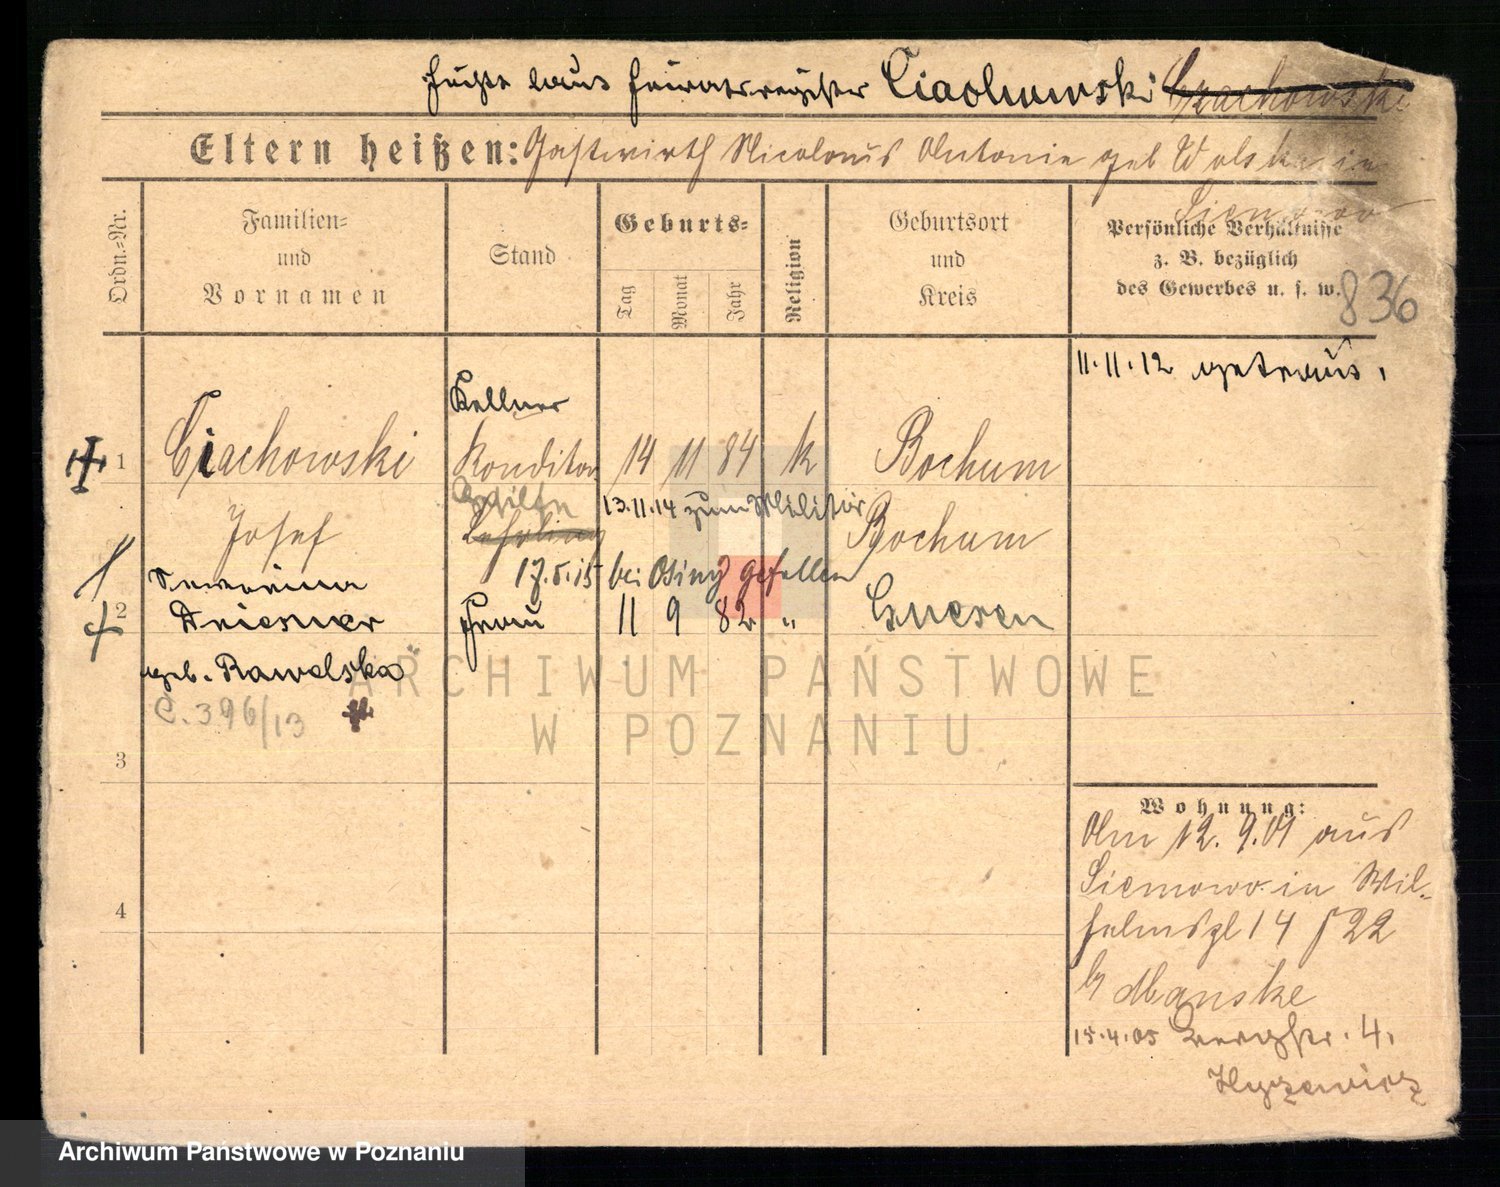 laut Heiratsregister Ciachowski Czachowski
Eltern heißen: Gastwirth Nicolaus Antonie geb Wolska in
Siemowo
Ordn.-Nr.
Familien-
und
Vornamen
Stand
Geburts-
Tag
Monat
Jahr
Religion
Geburtsort
und
Kreis
Persönliche Verhältnisse
z. B. bezüglich
des Gewerbes u. s. w.
836
11.11.12 getraut.
Kellner
1 Ciachowski Konditor 14 11 84 k Bochum
Gehilfe 13.11.14 zum Militär
Josef Lehrling Bochum
17.5.15 bei Osiny gefallen
2 Driesner Frau 11 9 82 " Gnesen
geb. Rawelska
C. 396/13
3
4
Wohnung:
Am 12.9.01 aus
Siemowo in Wil-
helmspl 14 II
b Manske
15.4.05 Bergstr. 4.
Hyzewicz
ARCHIWUM PAŃSTWOWE
W POZNANIU
Archiwum Państwowe w Poznaniu